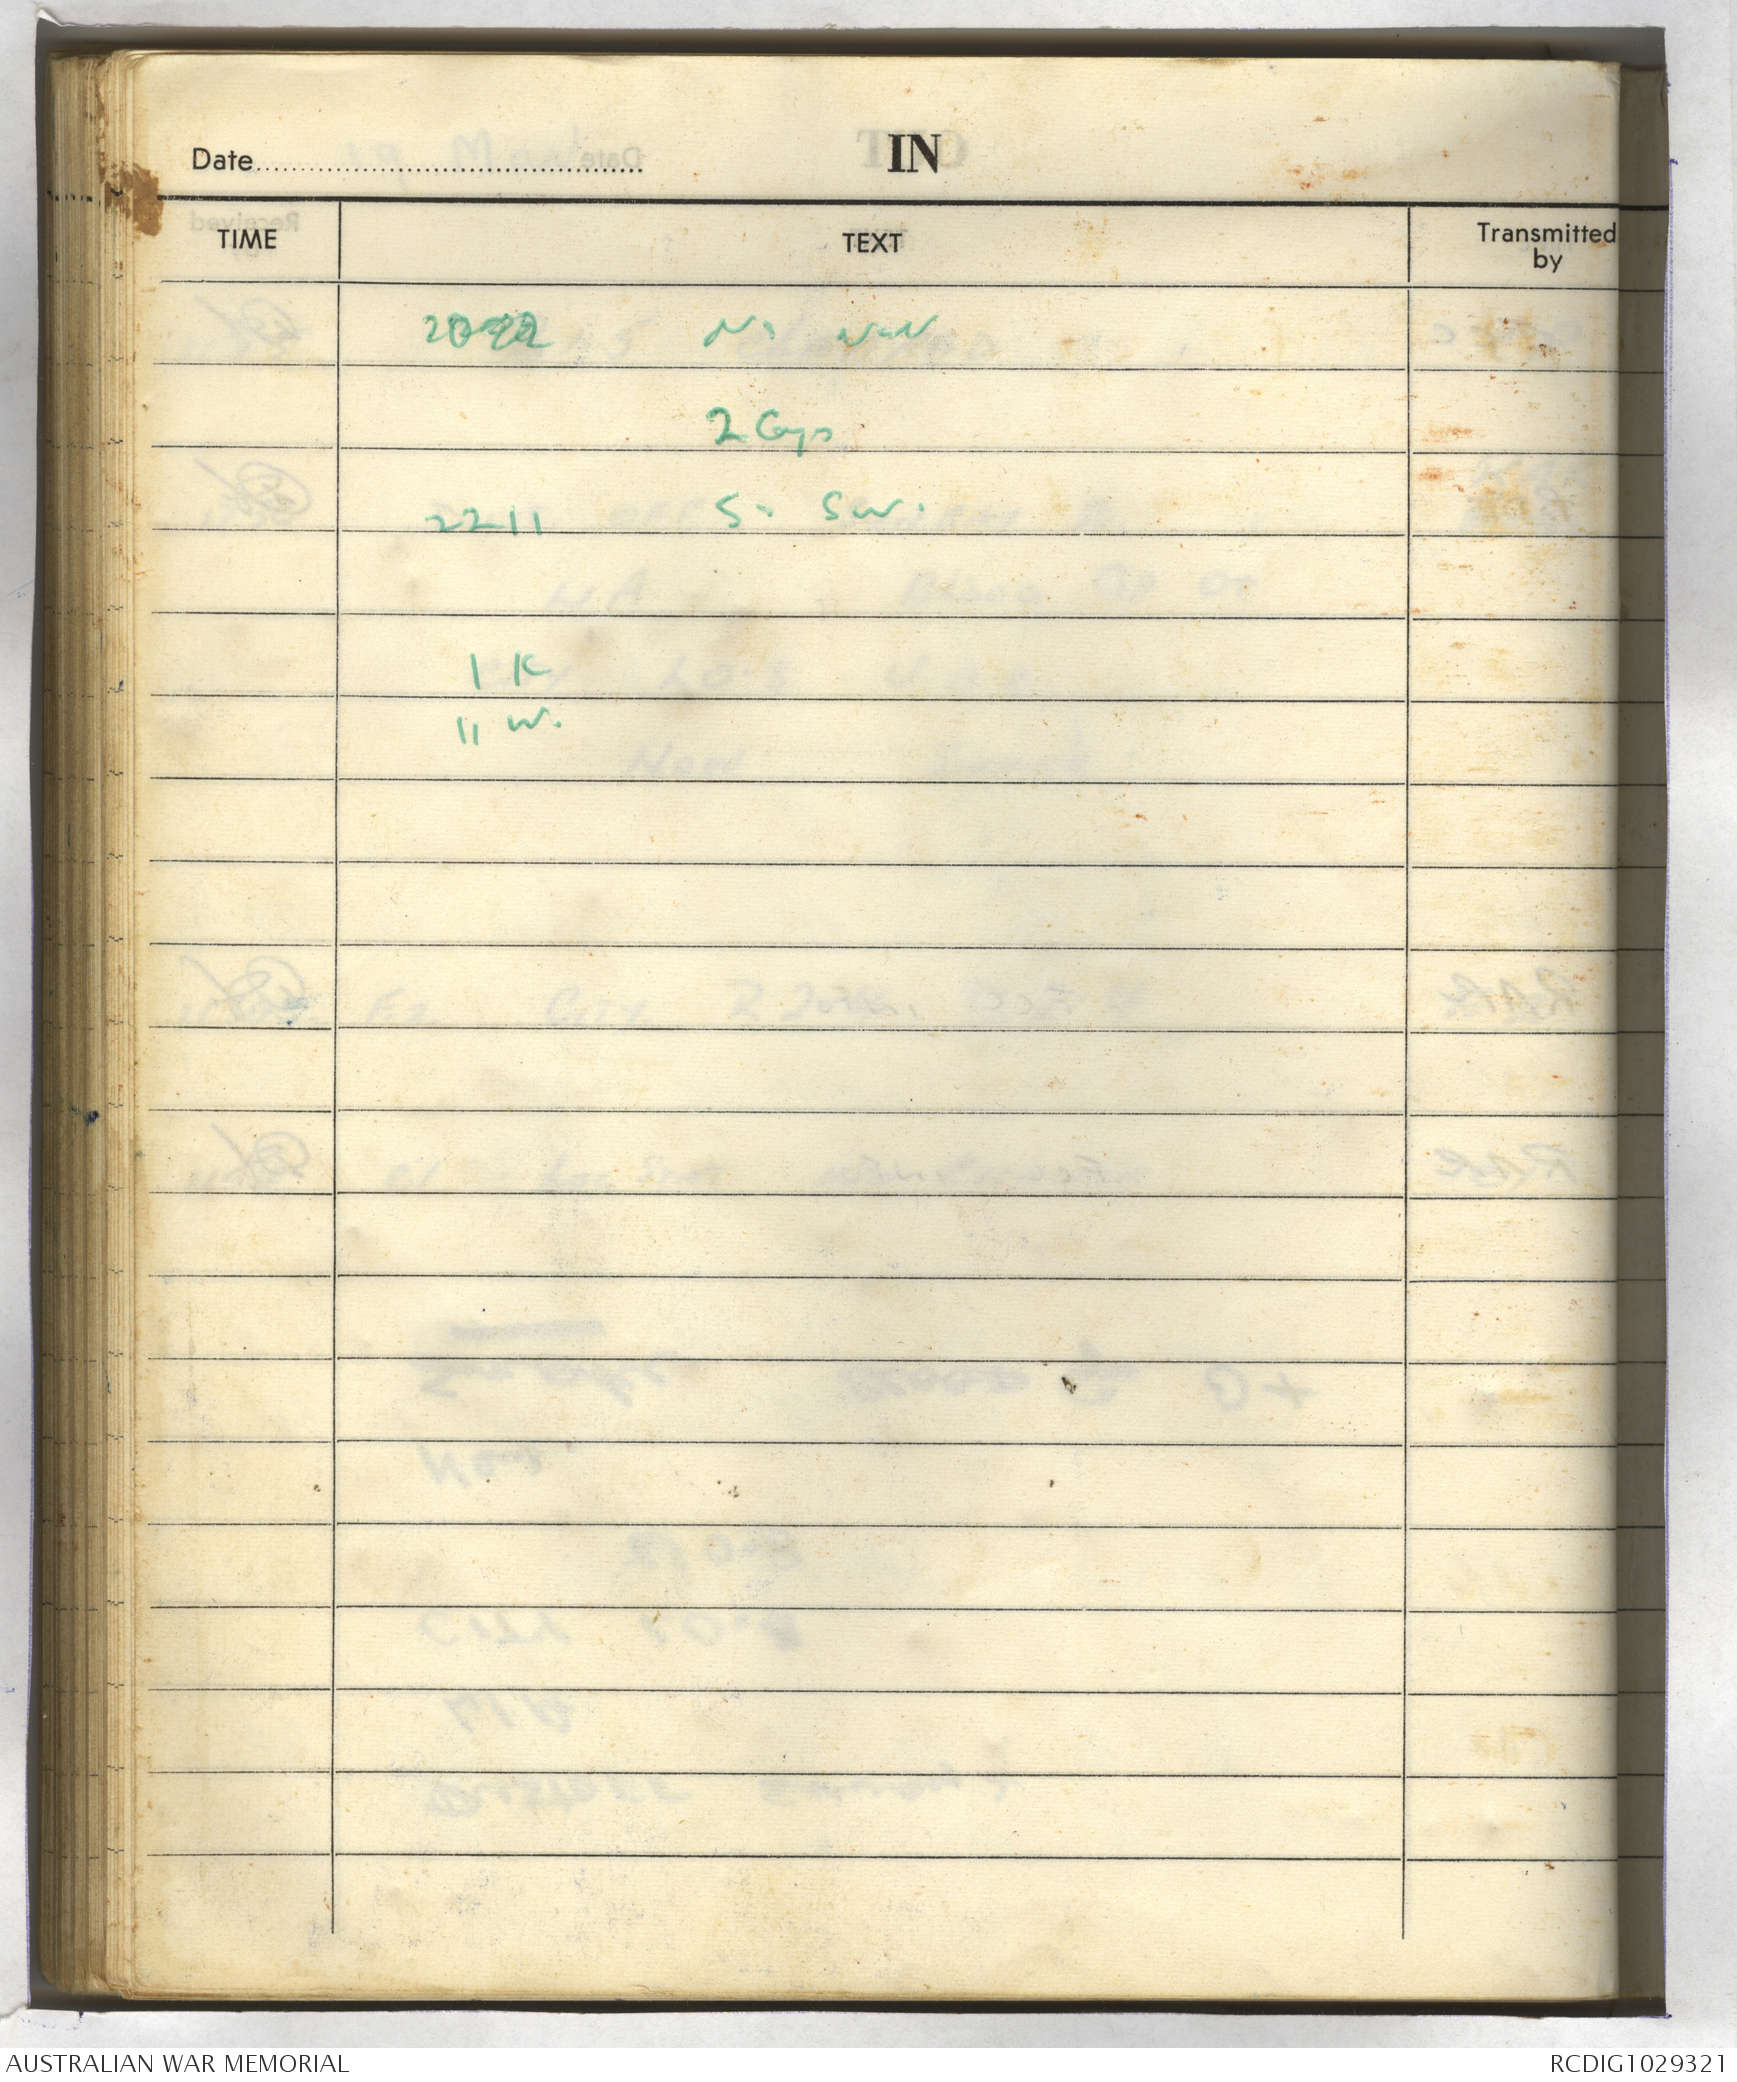 IN
Date
TIME TEXT Transmitted by
No
2 Coys
2211 S. SW.
1 K
11 W.
AUSTRALIAN WAR MEMORIAL RCDIG1029321